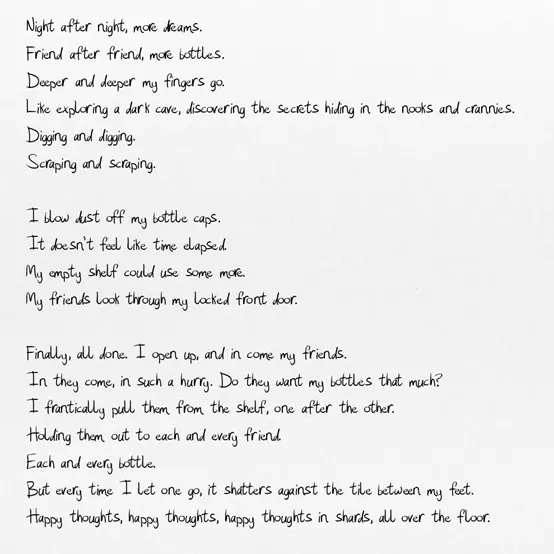 Night after night, more dreams.
Friend after friend, more bottles.
Deeper and deeper my fingers go.
Like exploring a dark cave, discovering the secrets hiding in the nooks and crannies.
Digging and digging.
Scraping and scraping.
I blow dust off my bottle caps.
It doesn't feel like time elapsed.
My empty shelf could use some more.
My friends look through my locked front door.
Finally, all done. I open up, and in come my friends.
In they come, in such a hurry. Do they want my bottles that much?
I frantically pull them from the shelf, one after the other.
Holding them out to each and every friend.
Each and every bottle.
But every time I let one go, it shatters against the tile between my feet.
Happy thoughts, happy thoughts, happy thoughts in shards, all over the floor.